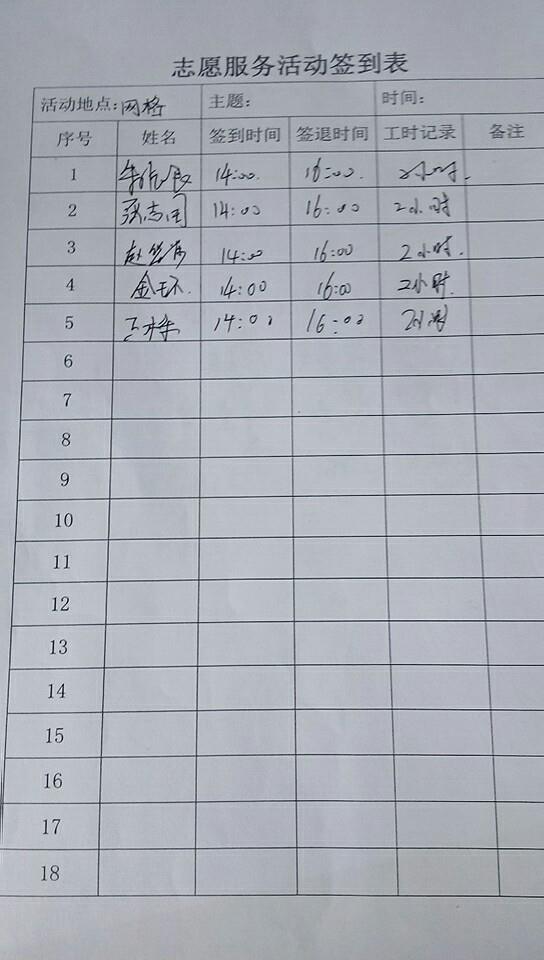 志愿服务活动签到表
活动地点:网格 主题: 时间:
序号 姓名 签到时间 签退时间 工时记录 备注
1 14:00. 16:00. 2小时.
2 张志国 14:00 16:00 2小时
3 赵 14:00 16:00 2小时.
4 金环. 14:00 16:00 2小时.
5 14:00 16:00 2小时
6
7
8
9
10
11
12
13
14
15
16
17
18